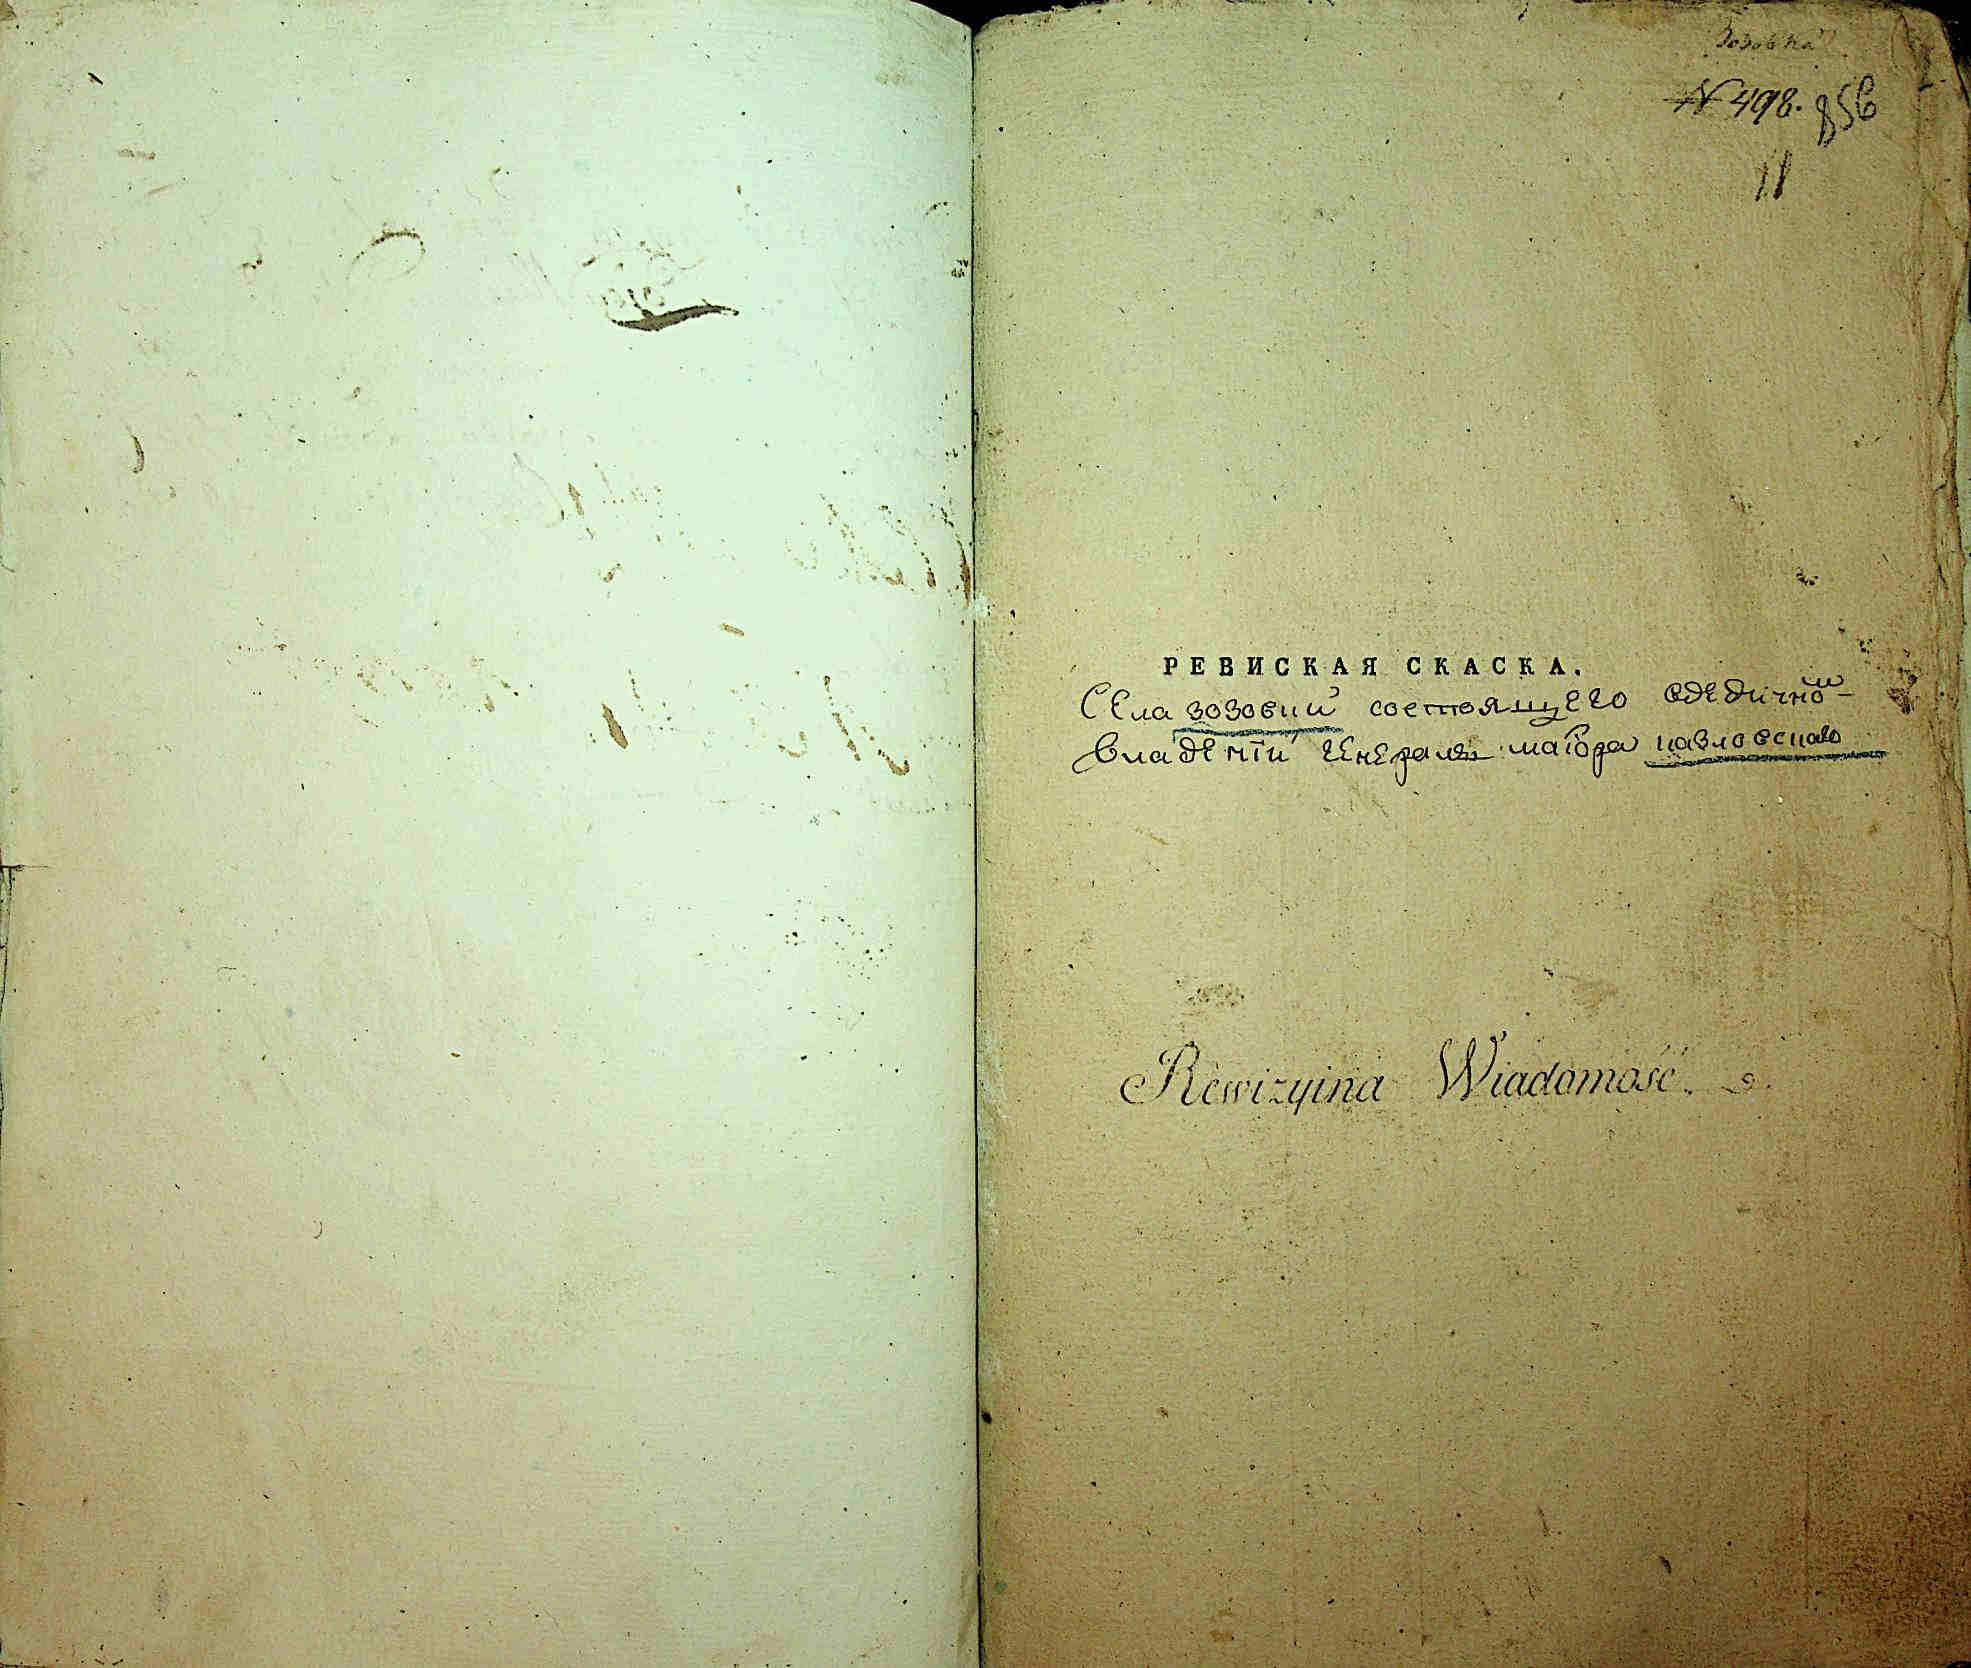 Зозовка
№ 498. 856
11
РЕВИСКАЯ СКАСКА.
Села зозовки состоящего вдедичном
владении генерала маіора павловскаго
Rewizyina Wiadomość.